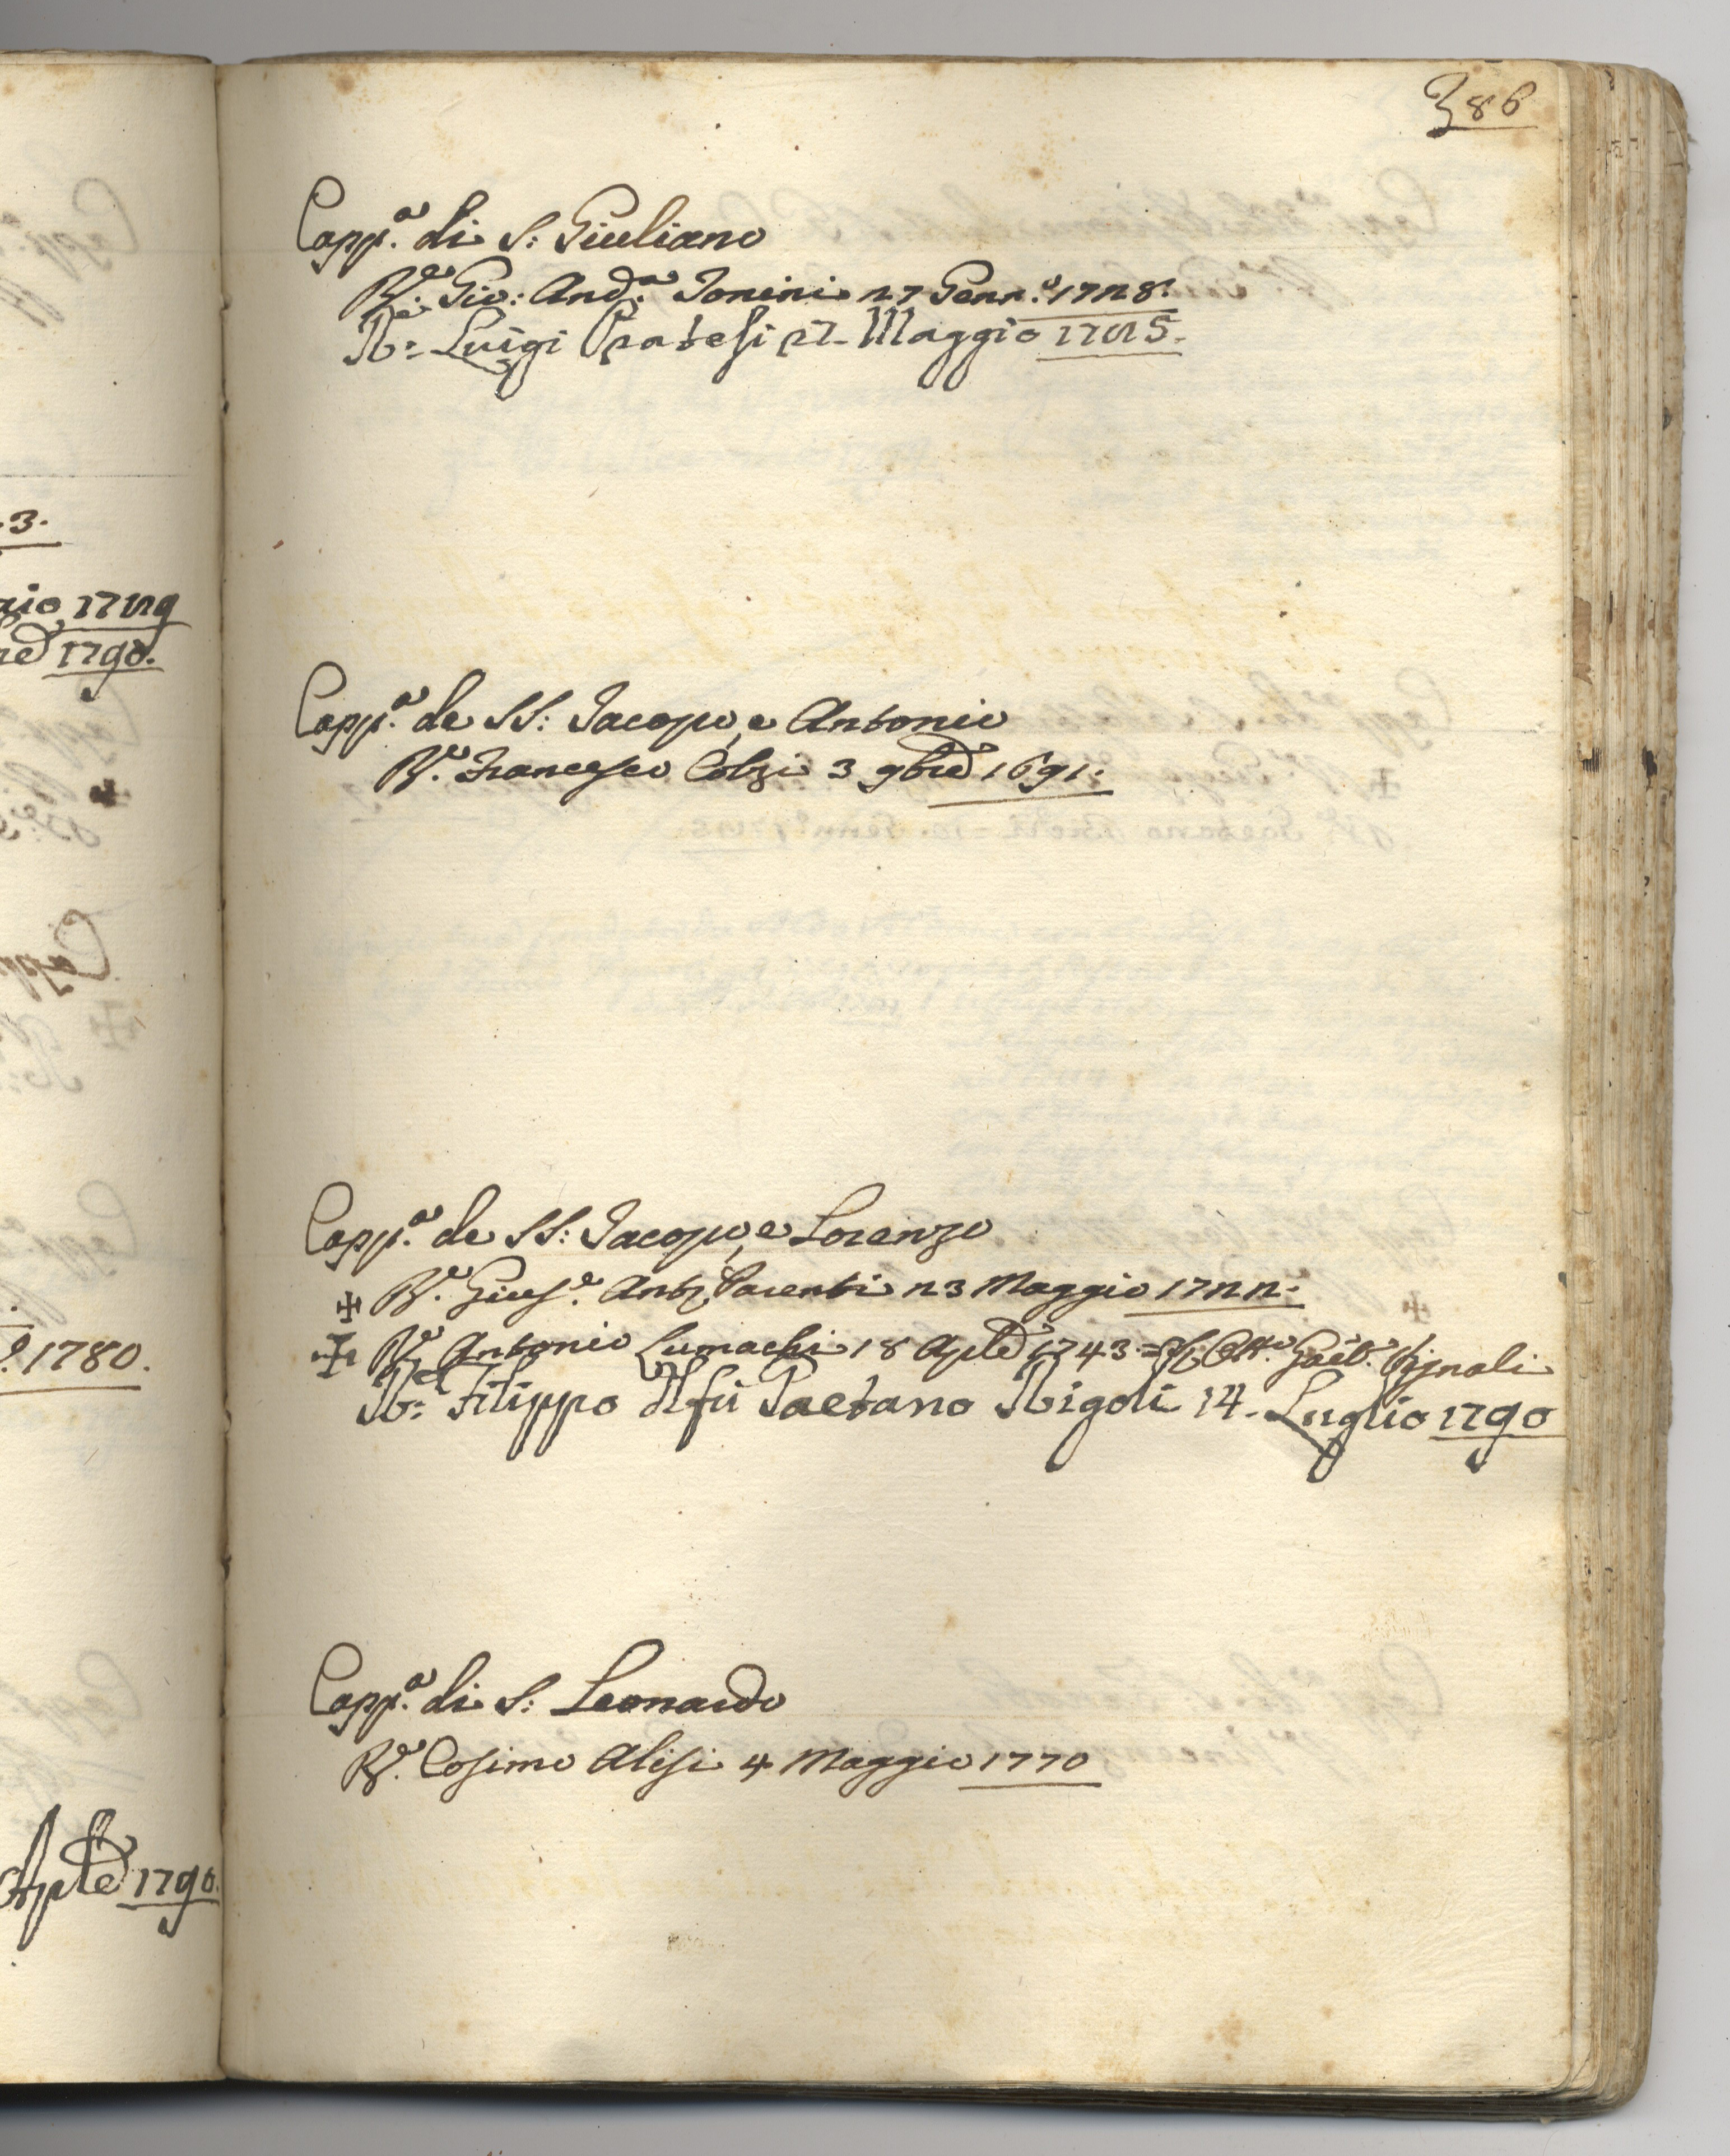 386
Capp.a di S: Giuliano
R.e Gio: And.a Tonini 27 Genn.o 1728.
R.e Luigi Pratesi 27. Maggio
Capp.a de SS: Jacopo, e Antonio
R.e Francesco Colzi 3 9bre 1691.
Capp.a de SS: Jacopo, e Lorenzo
✠ R.e Gius.e Ant.o Parenti 23 Maggio 1722.
✠ R.e Antonio Lumachi 18 Aple 1743. = Gaet.o Vignali
R.e Filippo del fù Gaetano Rigoli 14. Luglio 1790
Capp.a di S: Leonardo
R.e Cosimo Alisi 4 Maggio 1770
3.
gio 1729
re 1790.
1780.
Aple 1790.